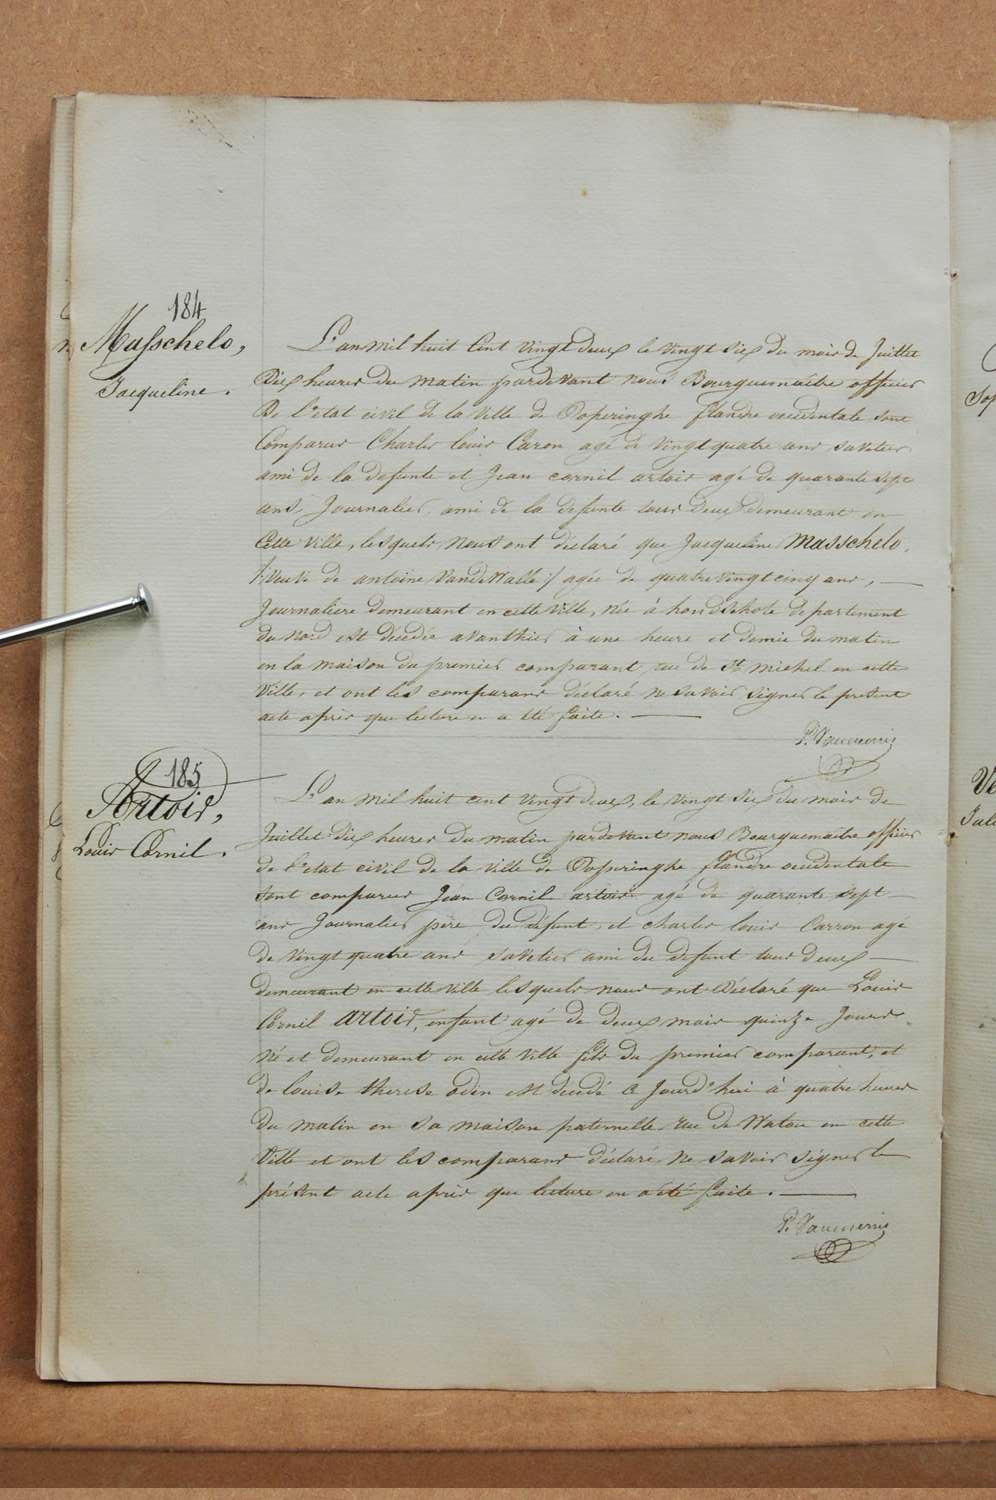 184
Masschelo,
Jacqueline.
L'an mil huit Cent vingt deux le vingt six du mois de Juillet
Dix heures du matin pardevant nous Bourguemaitre officier
De l'etat civil de la Ville de Poperinghe flandre occidentale sont
Comparus Charles louis Caron agé de vingt quatre ans savetier
ami de la defunte et Jean cornil artois agé de quarante sept
ans, Journalier, ami de la defunte tous deux demeurant en
Cette Ville, lesquels nous ont déclaré que Jacqueline Masschelo,
/: veuve de antoine VandeWalle :/ agée de quatre vingt cinq ans, —
Journaliere demeurant en cette Ville, née à hondschote departement
du Nord est décedée avanthier à une heure et demie du matin
en la maison du premier comparant, rue de St michel en cette
Ville, et ont les comparans déclaré ne savoir signer le present
acte aprés que lecture en a été faite. —
P. Vanmerris
185
Artois,
Louis Cornil.
L'an mil huit cent vingt deux, le vingt six du mois de
Juillet dix heures du matin pardevant nous Bourguemaitre officier
de l'etat civil de la Ville de Poperinghe flandre occidentale
sont comparus Jean Cornil artois agé de quarante sept —
ans Journalier père du défunt, et charles louis Carron agé
de vingt quatre ans savetier ami du defunt tous deux —
demeurant en cette Ville lesquels nous ont déclaré que Louis
Cornil artois, enfant agé de deux mois quinze Jours
né et demeurant en cette Ville fils du premier comparant, et
de louise therese odin est decedé a Jourd'hui à quatre heures
du matin en sa maison paternelle rue de Watou en cette
Ville et ont les comparans déclaré ne savoir signer le
présent acte aprés que lecture en a été faite. —
P. Vanmerris